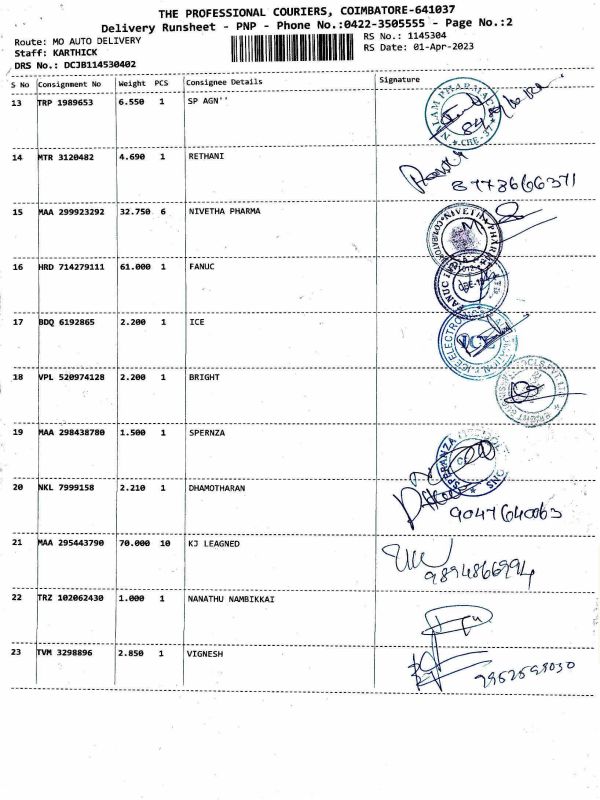 THE PROFESSIONAL COURIERS, COIMBATORE-641037
Delivery Runsheet - PNP - Phone No.:0422-3505555 - Page No.:2
Route: MO AUTO DELIVERY
Staff: KARTHICK
DRS No.: DCJB114530402
RS No.: 1145304
RS Date: 01-Apr-2023
S No Consignment No Weight PCS Consignee Details Signature
13 TRP 1989653 6.550 1 SP AGN''
14 MTR 3120482 4.690 1 RETHANI
8778666371
15 MAA 299923292 32.750 6 NIVETHA PHARMA
NIVETHA PHARMA
16 HRD 714279111 61.000 1 FANUC
FANUC
17 BDQ 6192865 2.200 1 ICE
ICE
18 VPL 520974128 2.200 1 BRIGHT
19 MAA 298438780 1.500 1 SPERNZA
SPERANZA
20 NKL 7999158 2.210 1 DHAMOTHARAN
9047640063
21 MAA 295443790 70.000 10 KJ LEAGNED
9894866994
22 TRZ 102062430 1.000 1 NANATHU NAMBIKKAI
23 TVM 3298896 2.850 1 VIGNESH